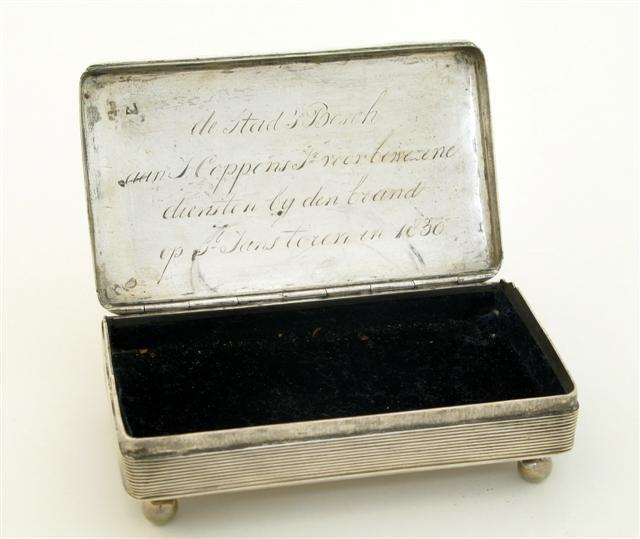 de stad 's Bosch
aan J Coppens Jr voor bewezene
diensten by den brand
op St Jans toren in 1830
E